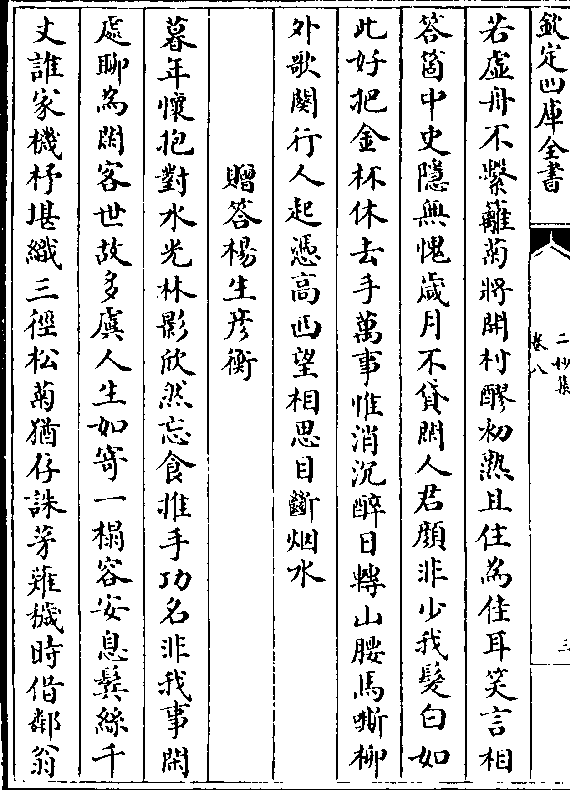 欽定四庫全書
二妙集
卷八
三
若虛舟不繫蘺菊將開村醪初熟且住為佳耳笑言相
答箇中史隱無愧歲月不貸閑人君顏非少我髮白如
此好把金杯休去手萬事惟消沉醉日轉山腰馬嘶柳
外歌闋行人起憑高西望相思目斷烟水
贈答楊生彦衡
暮年懷抱對水光林影欣然忘食推手功名非我事閑
處聊為閑客世故多虞人生如寄一榻容安息鬢絲千
丈誰家機杼堪織三徑松菊猶存誅茅薙穢時借鄰翁